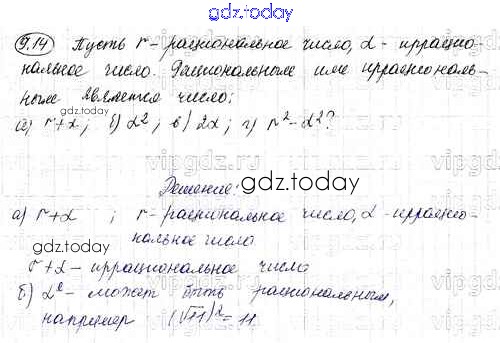 gdz.today
9.14 Пусть r - рациональное число, α - иррацио-
нальное число. Рациональным или иррациональ-
ным является число:
gdz.today
а) r+α; б) α²; в) 2α; г) r²-α²?
vipgdz.ru
Решение:
gdz.today
а) r+α; r - рациональное число, α - иррацио-
нальное число
r+α - иррациональное число
б) α² - может быть рациональным,
например (√11)² = 11